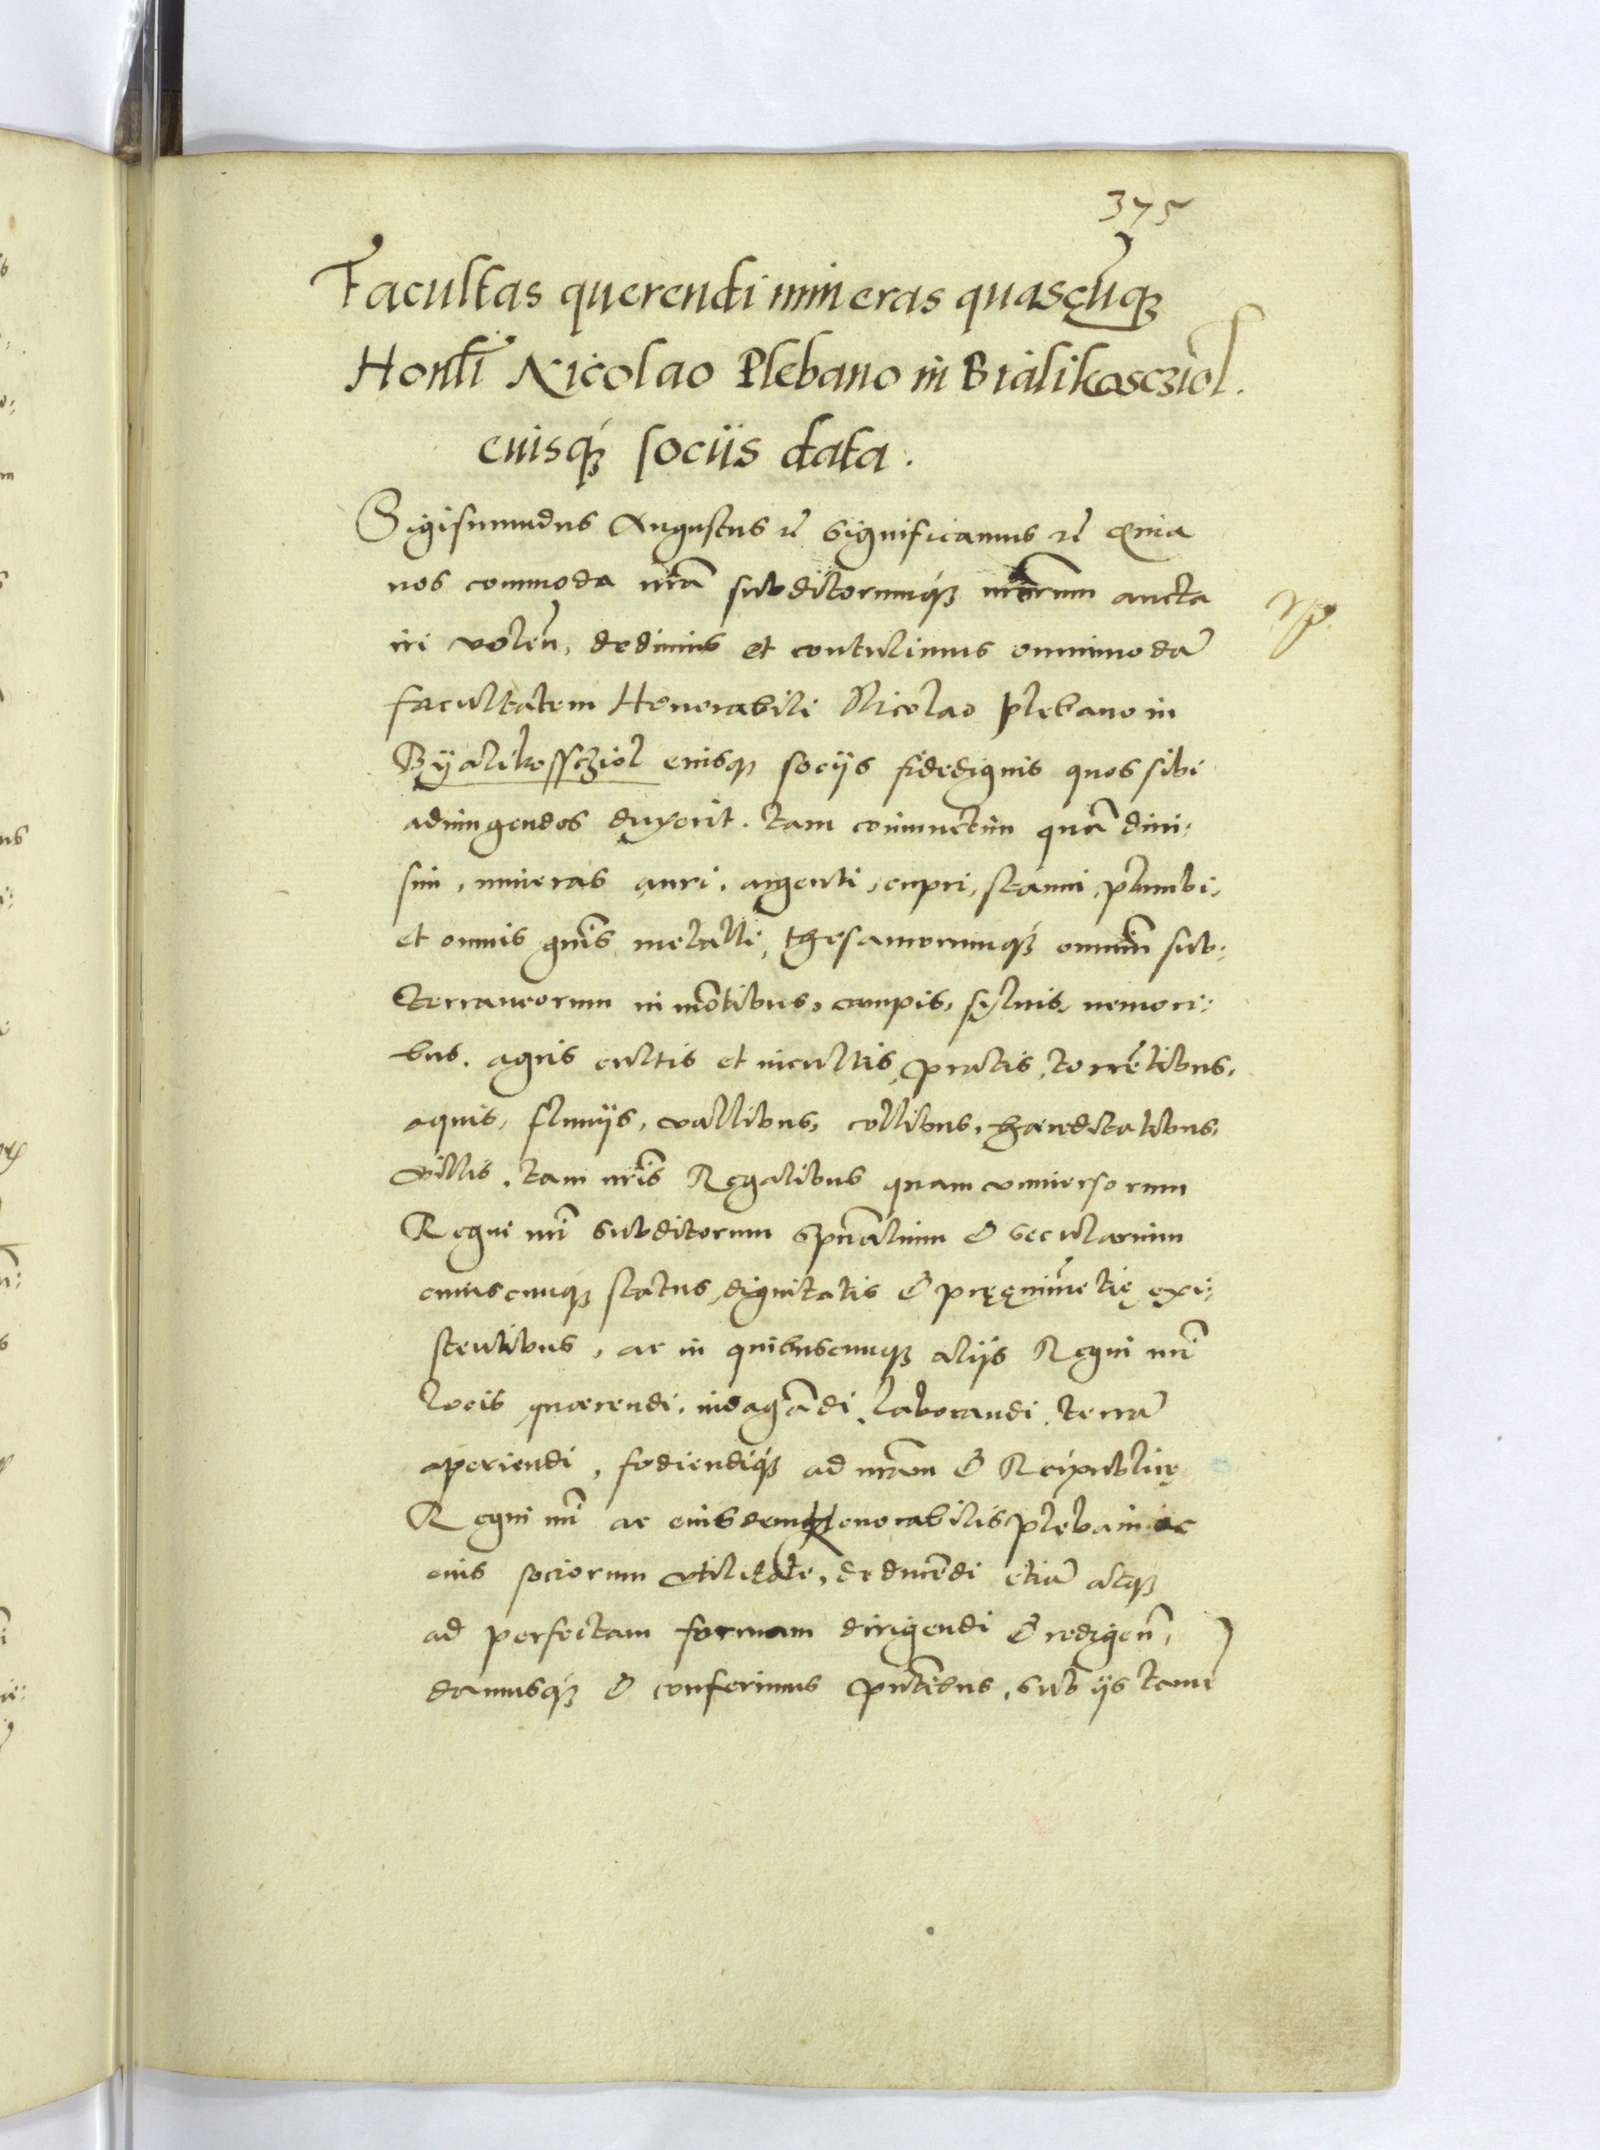 375
Facultas querendi mineras quascūqꝫ
Honli Nicolao Plebano in Bialikosczíol.
eiusqꝫ sociis data.
Sigismundus Augustus rē significamus rē Quia
nos commoda nrā subditorumqꝫ nrōrum aucta
iri volen̄, dedimus et contulimus omnimodā
facultatem Honorabili Nicolao plebano in
Byalikossczíol eiusqꝫ socijs fidedignis quos sibi
adiungendos duxerit. tam coniunctim quā diui:
sim, mineras auri, argenti, cupri, stanni, plumbi,
et omnis gn̄is metalli, thesaurorumqꝫ omniūm sub:
terraneorum in mōtibus, campis, syluis, nemori:
bus. agris cultis et incultis, pratis, torrētibus,
aquis, fluuijs, vallibus, collibus, hæreditatibus,
villis, tam nrīs Regalibus quam vniuersorum
Regni nrī subditorum spūalium & secularium
cuiuscunqꝫ status, dignitatis & pręęminētię exi:
stentibus, ac in quibuscunqꝫ alijs Regni nrī
locis quærendi, indagādi, laborandi, terrā
aperiendi, fodiendiqꝫ ad nrām & Reipublicę
Regni nrī ac eiusdem Honorabilis plebani ac
eius sociorum vtilitate, deducēdi etiā atqꝫ
ad perfectam formam dirigendi & redigen̄,
damusqꝫ & conferimus pn̄tibus, sub ijs tamē